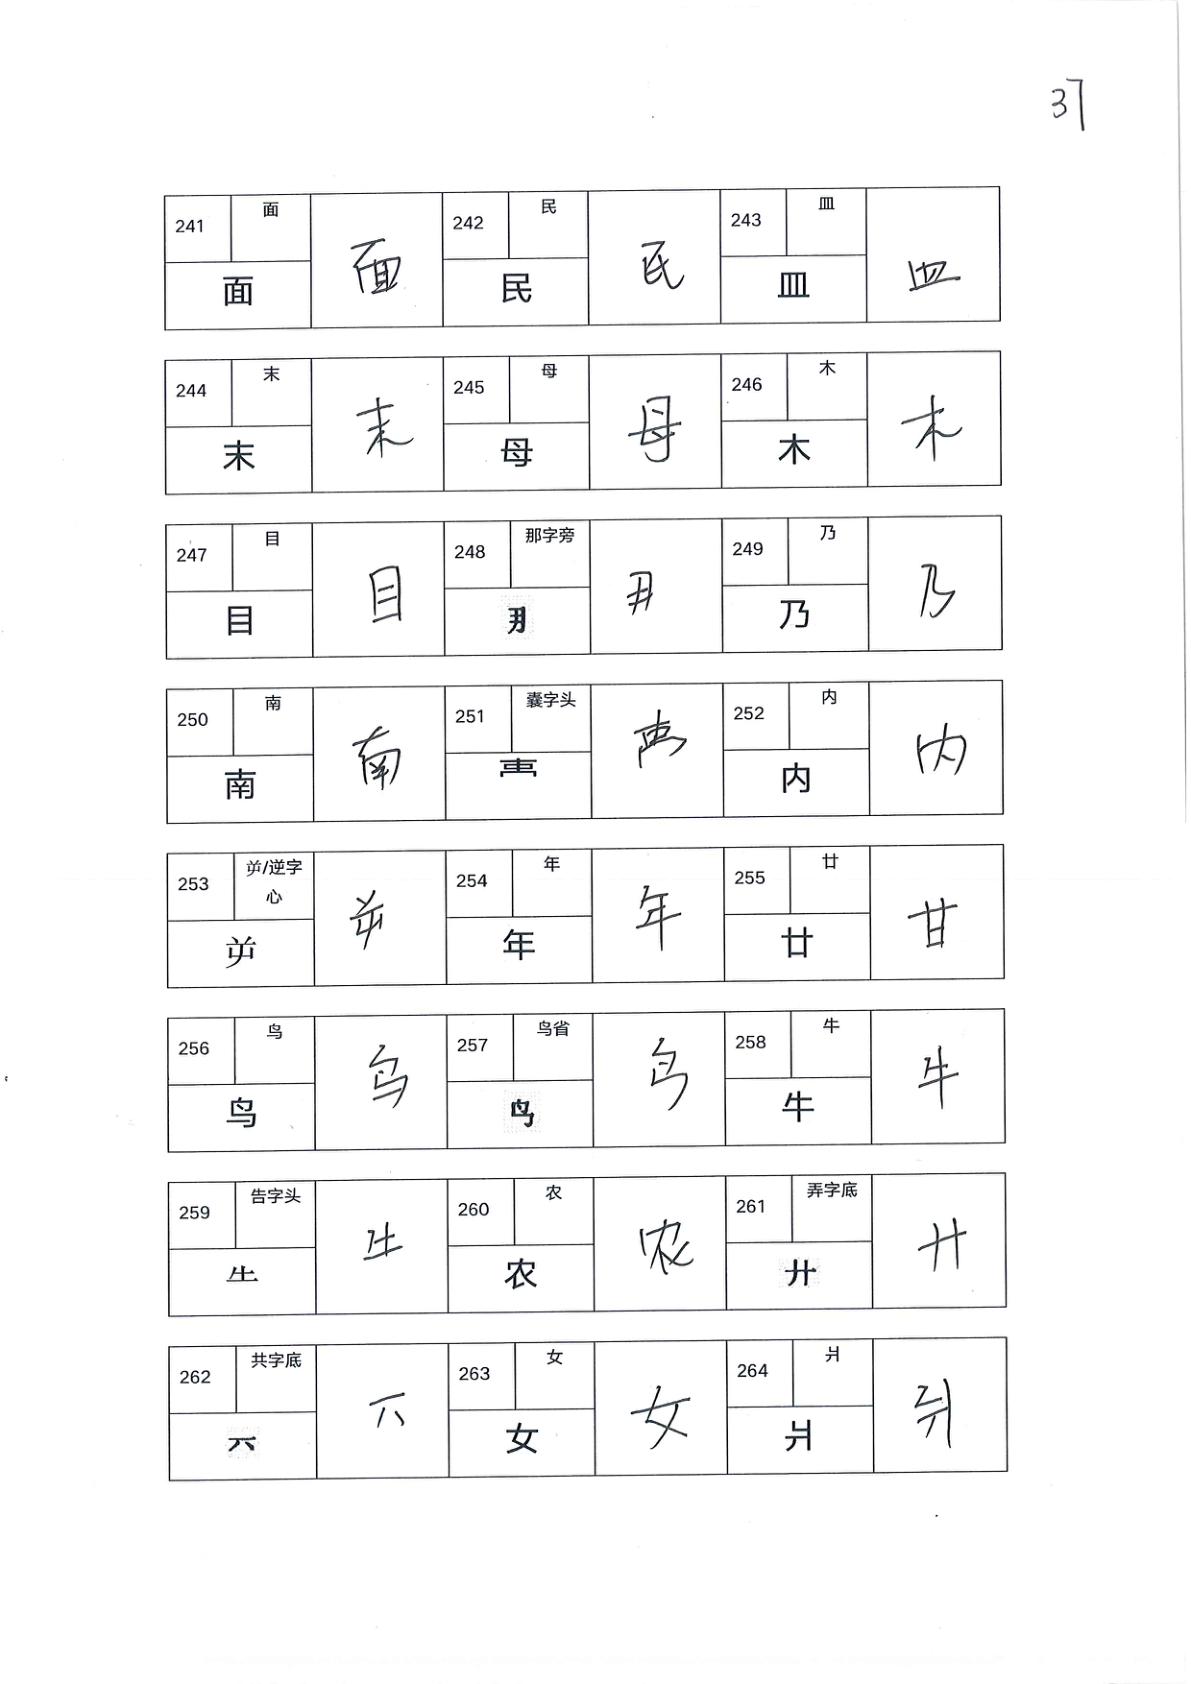 37
241 面 面 242 民 民 243 皿 皿
面 民 皿
244 末 末 245 母 母 246 木 木
末 母 木
247 目 目 248 那字旁 249 乃 乃
目 乃
250 南 南 251 囊字头 252 内 内
南 内
253 屰/逆字心 屰 254 年 年 255 廿 甘
屰 年 廿
256 鸟 鸟 257 鸟省 258 牛 牛
鸟 牛
259 告字头 260 农 农 261 弄字底 廾
农 廾
262 共字底 263 女 女 264 爿
女 爿